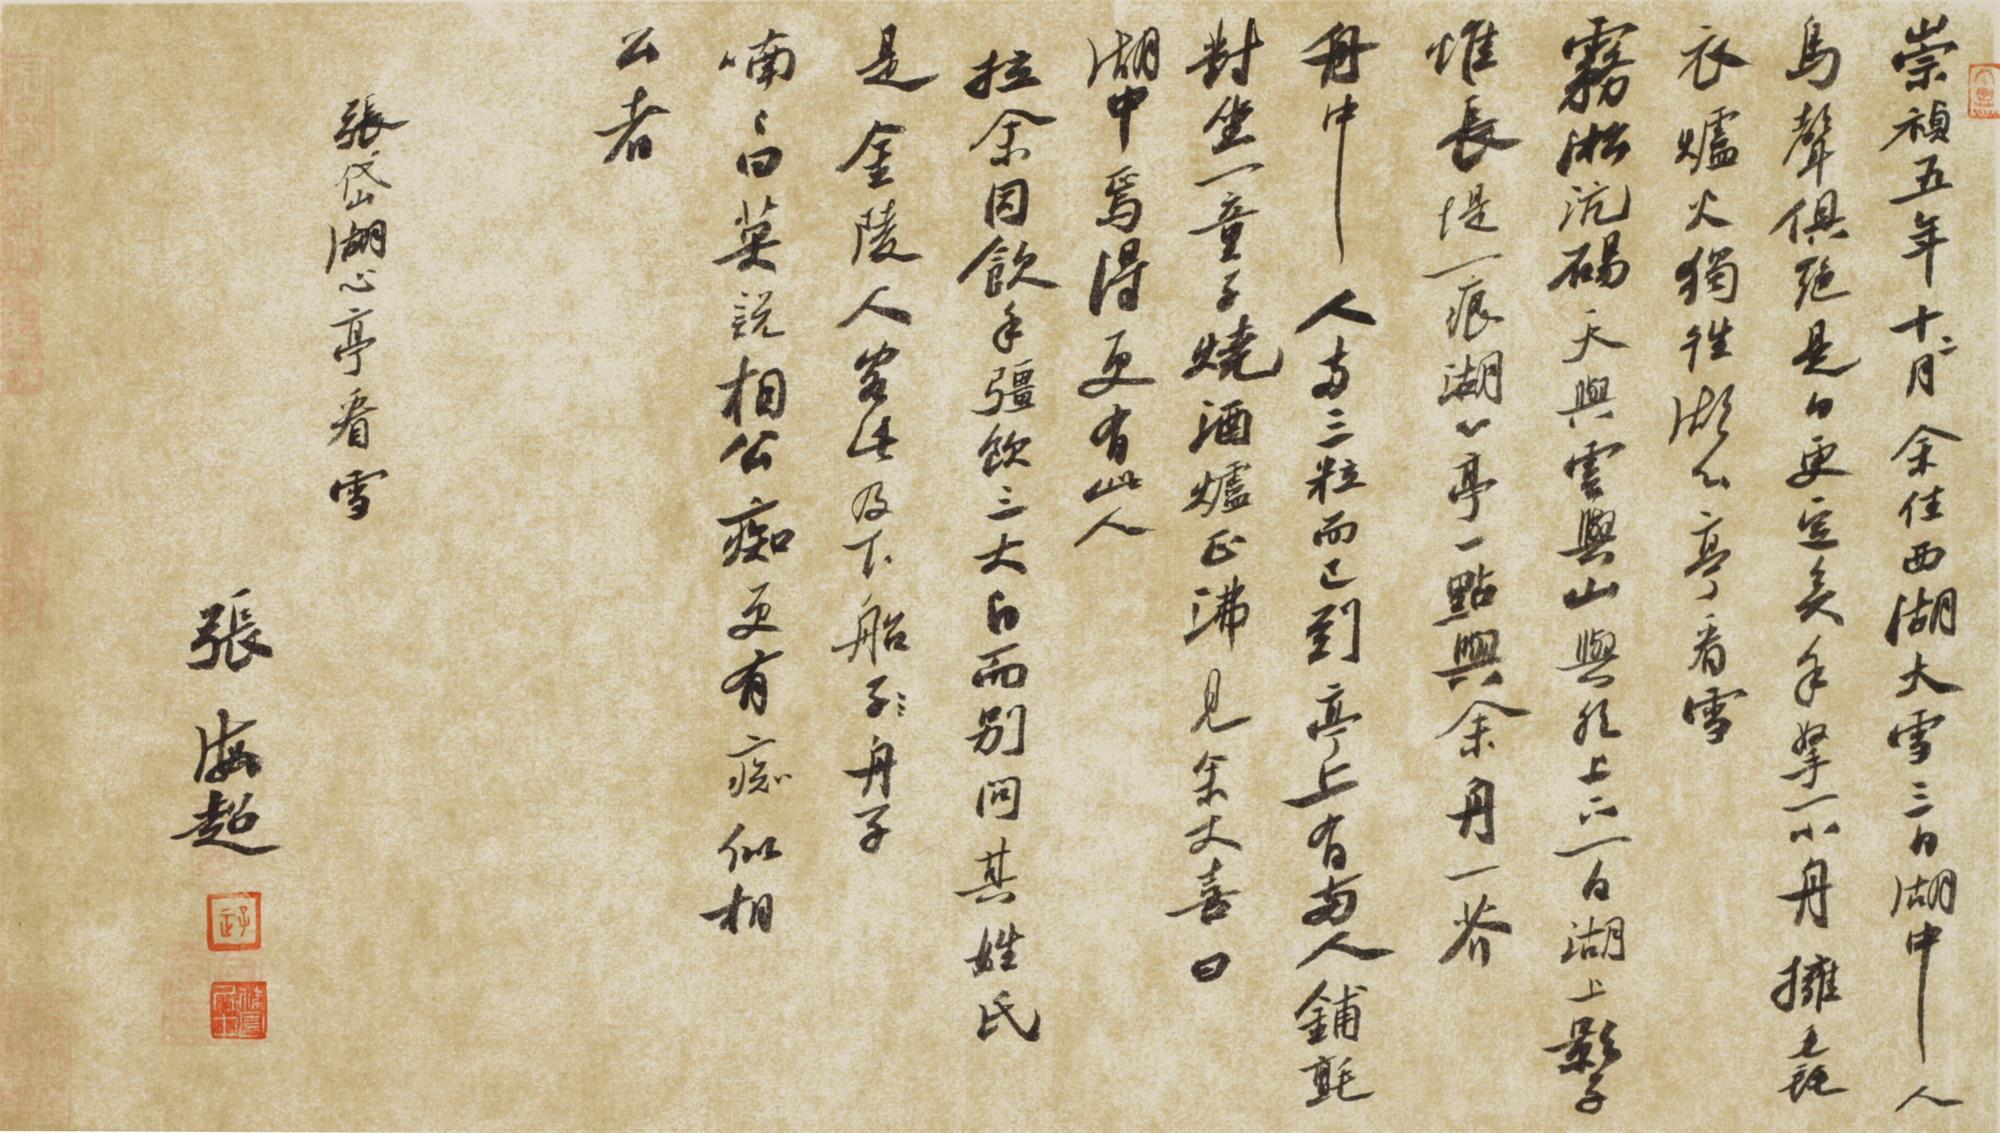 崇禎五年十二月余住西湖大雪三日湖中人
鳥聲俱絕是日更定矣余拏一小舟擁毳
衣爐火獨往湖心亭看雪
霧淞沆碭天與雲與山與水上下一白湖上影子
惟長堤一痕湖心亭一點與余舟一芥
舟中人兩三粒而已到亭上有兩人鋪氈
對坐一童子燒酒爐正沸見余大喜曰
湖中焉得更有此人
拉余同飲余彊飲三大白而別問其姓氏
是金陵人客此及下船子〻舟子
喃〻曰莫說相公癡更有癡似相
公者
張岱湖心亭看雪
張海超